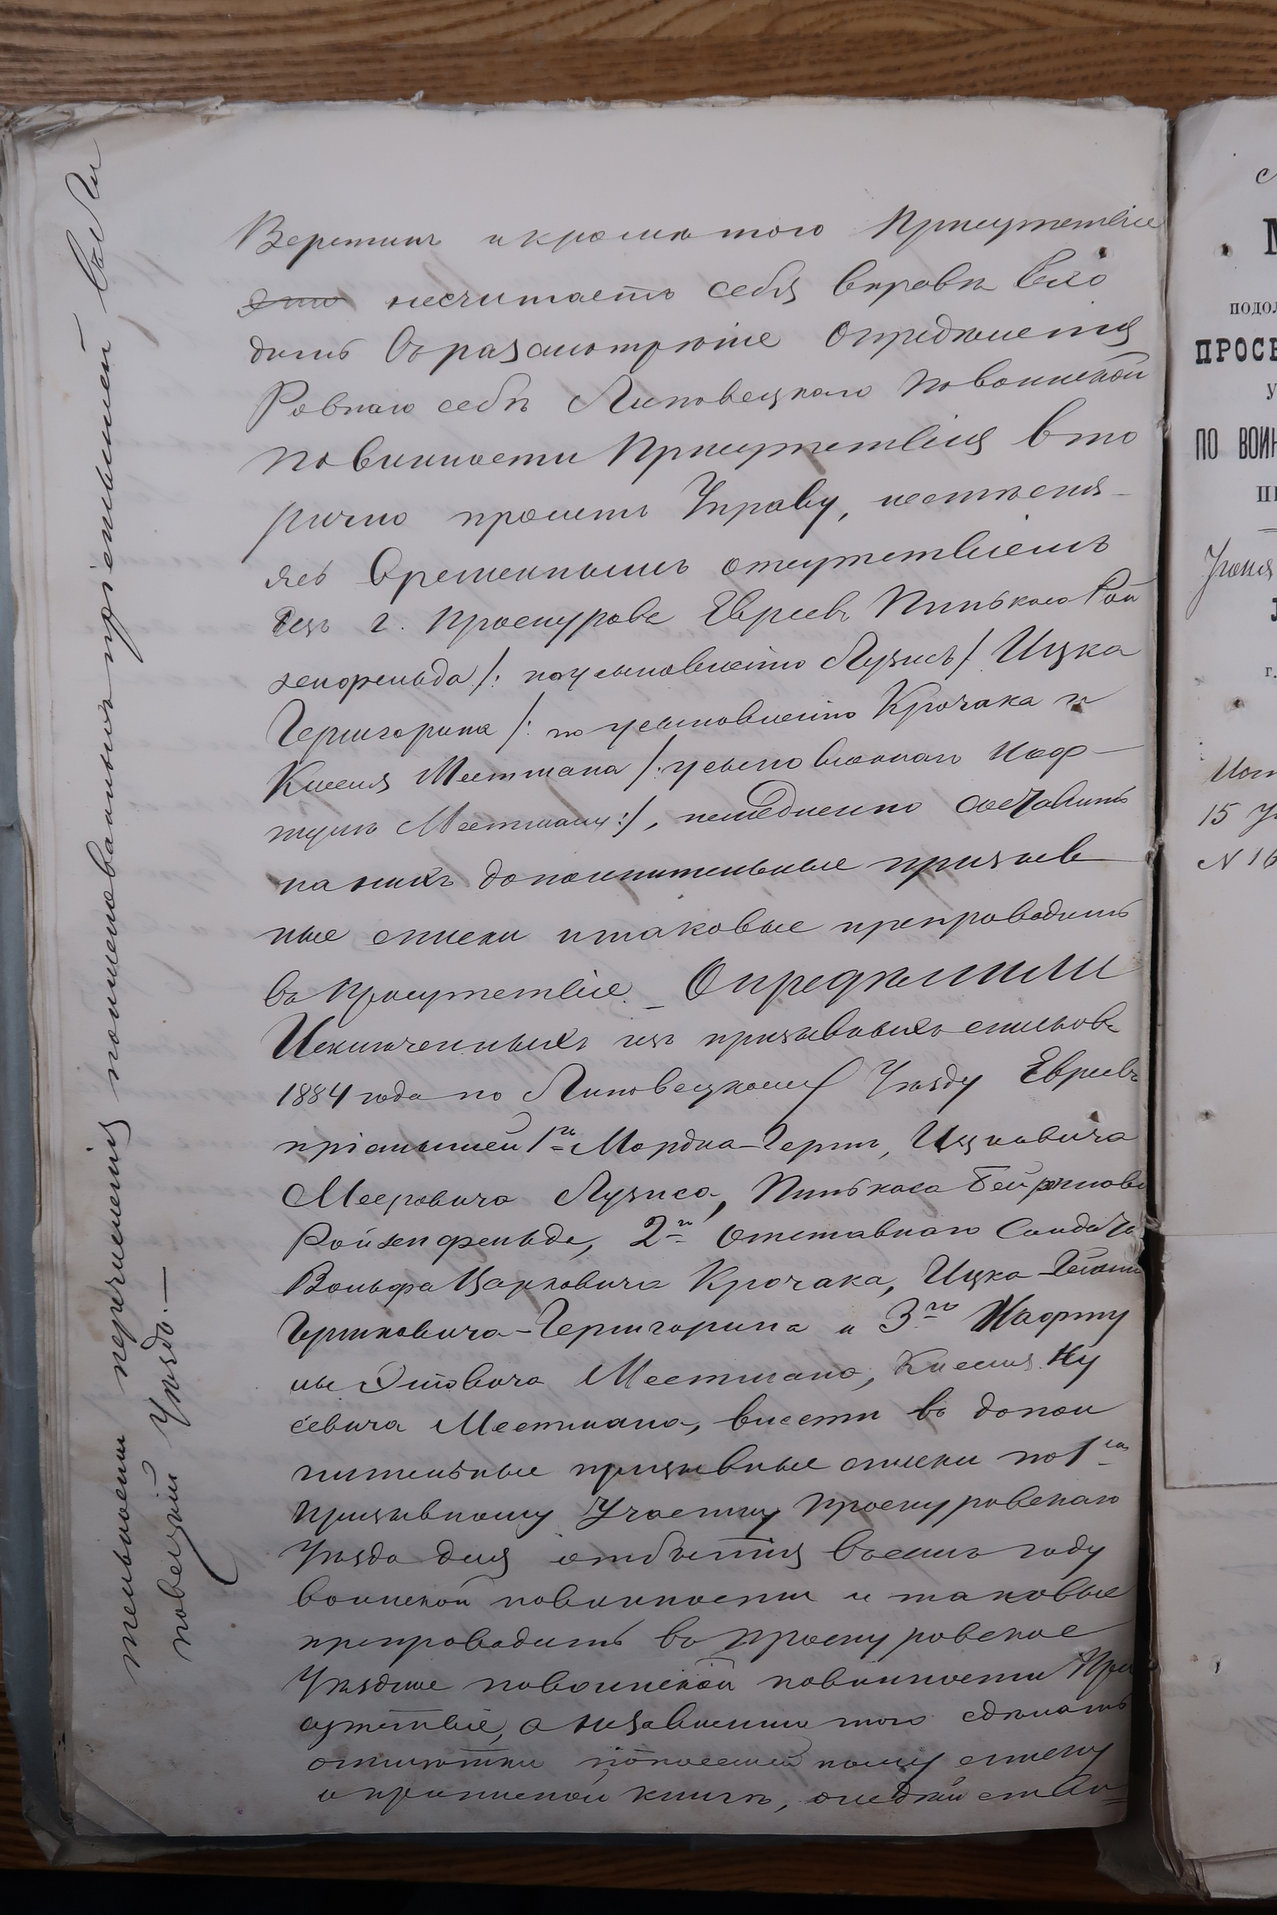 Верстинъ и кромѣ того Присутствіе
это несчитаетъ себя вправѣ вхо
дить въ разсмотрѣніе опредѣленія
Равнаго себѣ Липовецкаго по воинской
повинности Присутствія вто
рично проситъ Управу, нестѣсня-
ясь временнымъ отсутствіемъ
изъ г. Проскурова Евреевъ Пинькаса Рой
зенфельда /: по усыновленію Лузисъ/ Ицка
Гершгорина /: по усыновленію Крочака и
Киселя Местмана /: усыновленнаго Наф-
тулѣ Местману :/, немедленно составить
на нихъ дополнительные призыв-
ные списки и таковые препроводить
въ Присутствіе. – Опредѣлили
Исключенныхъ изъ призывныхъ списковъ
1884 года по Липовецкому Уѣзду Евреевъ
пріемышей 1го Мордка-Герша, Ицковича
Мееровича Лузиса, Пинькаса Бейришова
Ройзенфельда, 2го отставнаго Солдата
Вольфа Царковича Крочака, Ицка-
Гершковича-Гершгорина и 3го Нафту
лы Эйтовича Местмана, Киселя Ну
севича Местмана, внести въ допол
нительные призывные списки по 1му
Призывному Участку Проскуровскаго
Уѣзда для отбытія въ семъ году
воинской повинности и таковые
препроводить въ Проскуровское
Уѣздное по воинской повинности При
сутствіе, а независимо того сдѣлать
отмѣтки по посемейному списку
и приписной книгѣ, о
тельности перечисленія поименованныхъ пріемышей въ Ли
повецкій Уѣздъ. —
ПОДОЛ
ПРОСК
У
ПО ВОИН
ПР
г.
15
N 16